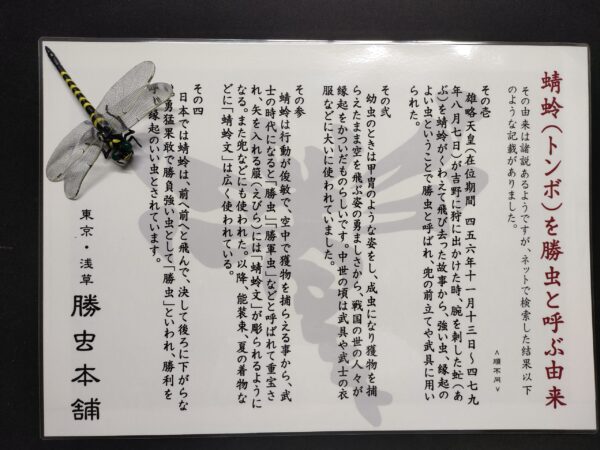 蜻蛉(トンボ)を勝虫と呼ぶ由来
その由来は諸説あるようですが、ネットで検索した結果以下
のような記載がありました。
<順不同>
その壱
雄略天皇(在位期間 四五六年十一月十三日~四七九
年八月七日)が吉野に狩に出かけた時、腕を刺した虻(あ
ぶ)を蜻蛉がくわえて飛び去った故事から、強い虫、縁起の
よい虫ということで勝虫と呼ばれ、兜の前立てや武具に用い
られた。
その弐
幼虫のときは甲冑のような姿をし、成虫になり獲物を捕
らえたまま空を飛ぶ姿の勇ましさから、戦国の世の人々が
縁起をかついだものらしいです。中世の頃は武具や武士の衣
服などに大いに使われていました。
その参
蜻蛉は行動が俊敏で、空中で獲物を捕らえる事から、武
士の時代になると「勝虫」「勝軍虫」などと呼ばれて重宝さ
れ、矢を入れる服(えびら)には「蜻蛉文」が彫られるように
なる。また兜などにも使われた。以降、能装束、夏の着物な
どに「蜻蛉文」は広く使われている。
その四
日本では蜻蛉は、前へ前へと飛んで、決して後ろに下がらな
い勇猛果敢で勝負強い虫として「勝虫」といわれ、勝利を
呼ぶ縁起のいい虫とされています。
東京・浅草 勝虫本舗